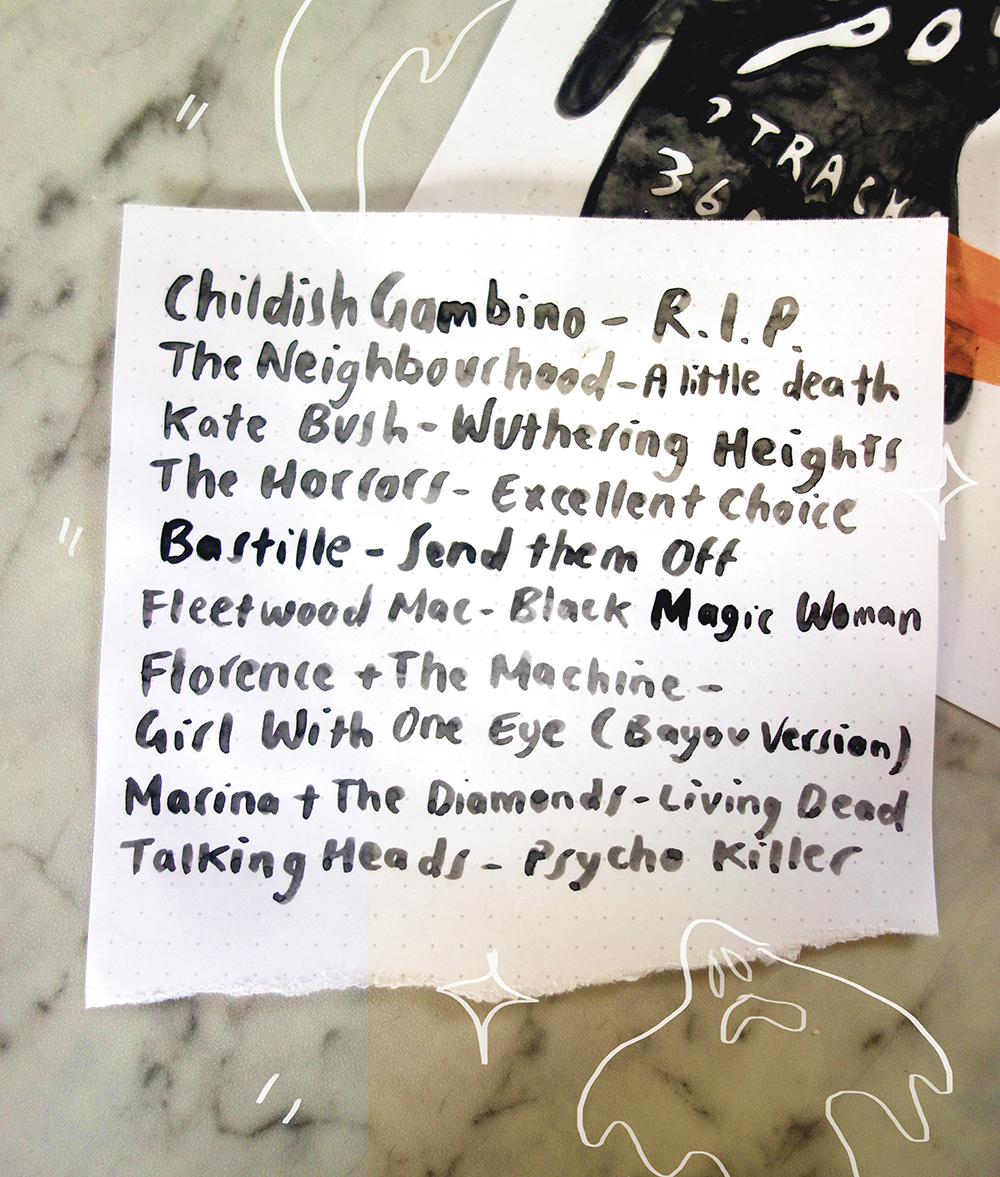 9 TRACKS
36
Childish Gambino - R.I.P.
The Neighbourhood - A little death
Kate Bush - Wuthering Heights
The Horrors - Excellent Choice
Bastille - Send them Off
Fleetwood Mac - Black Magic Woman
Florence + The Machine -
Girl With One Eye (Bayou Version)
Marina + The Diamonds - Living Dead
Talking Heads - Psycho Killer